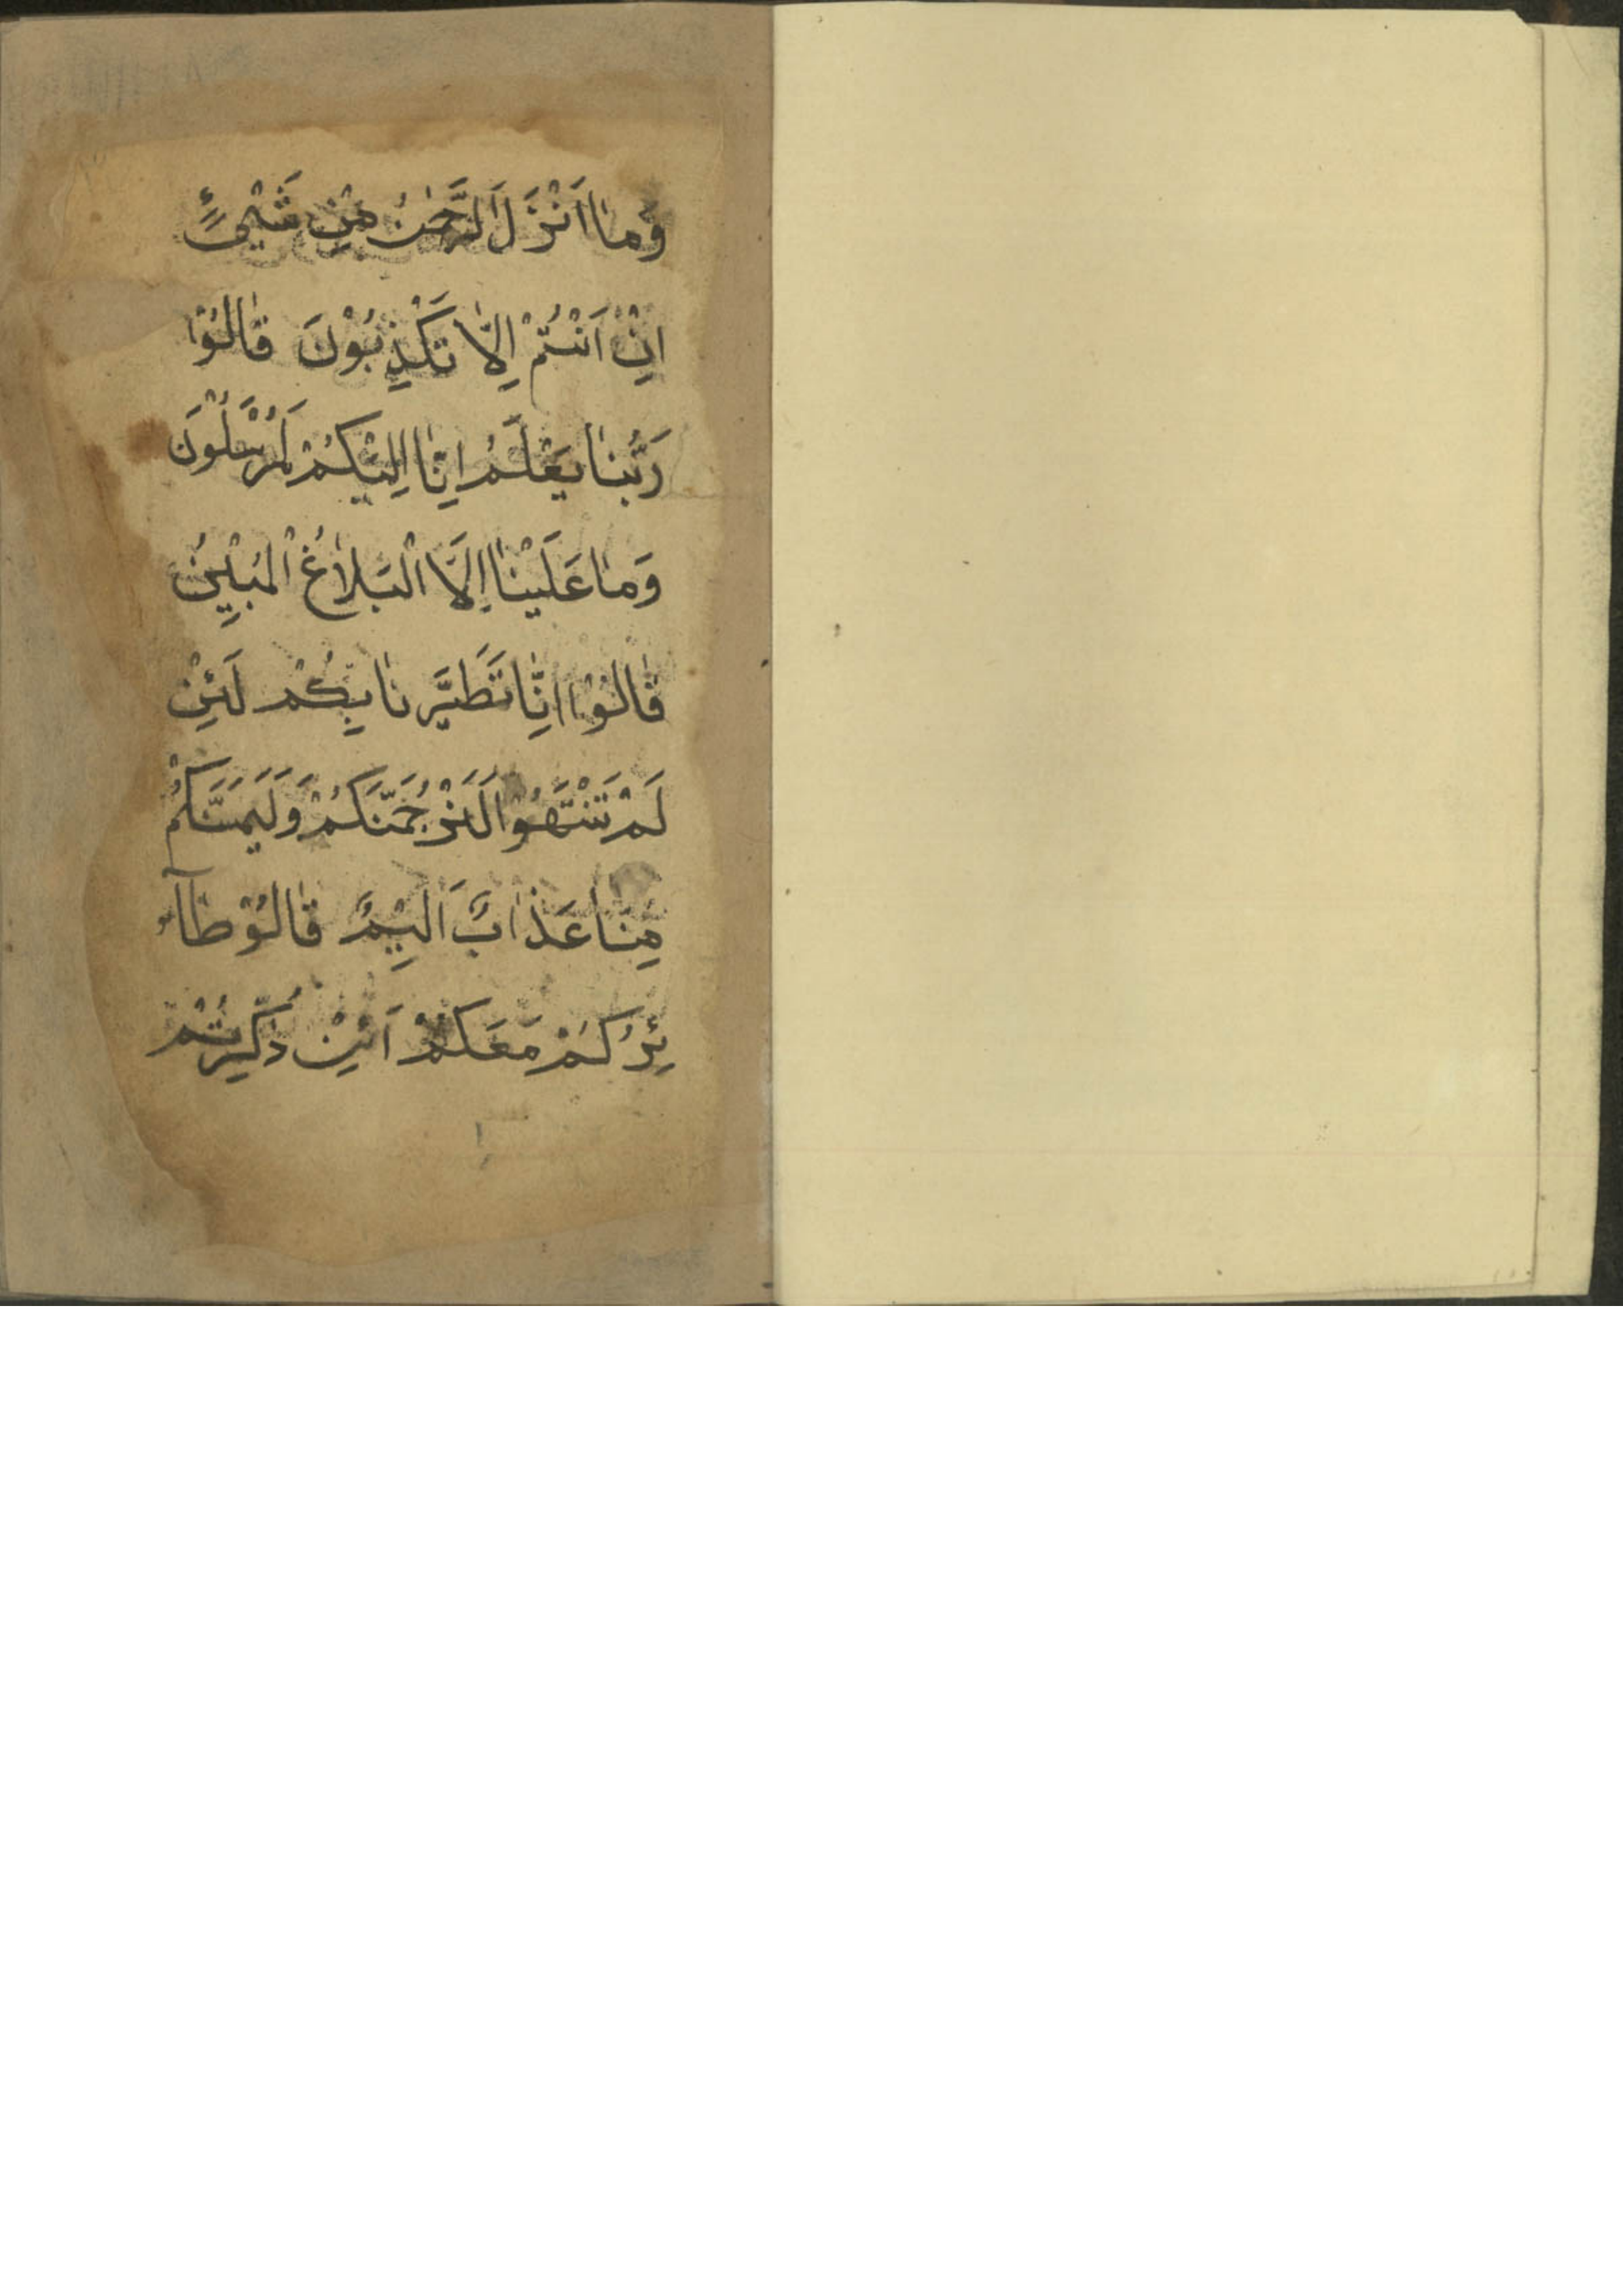 وَمٰا اَنْزَلَ الرَّحْمٰنُ مِنْ شَیْئٍ
اِنْ اَنْتُمْ اِلّٰا تَكْذِبُوْنَ قٰالُوْا
رَبُّنٰا يَعْلَمُ اِنّٰا اِلَيْكُمْ لَمُرْسَلُوْنَ
وَمٰا عَلَيْنٰا اِلَّا الْبَلٰاغُ الْمُبِيْنُ
قٰالُوْا اِنّٰا تَطَيَّرْنٰا بِكُمْ لَئِنْ
لَمْ تَنْتَهُوْا لَنَرْجُمَنَّكُمْ وَلَيَمَسَّنَّكُمْ
مِنّٰا عَذٰابٌ اَلِيْمٌ قٰالُوْ طٰآ
ئِرُكُمْ مَعَكُمْ اَئِنْ ذُكِّرْتُمْ